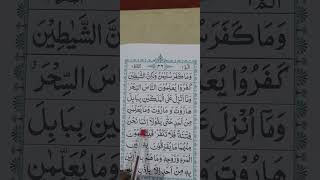 وَمَا كَفَرَ سُلَيْمٰنُ وَلٰكِنَّ الشَّيٰطِيْنَ
كَفَرُوْا يُعَلِّمُوْنَ النَّاسَ السِّحْرَ
وَمَآ اُنْزِلَ عَلَى الْمَلَكَيْنِ بِبَابِلَ
هَارُوْتَ وَمَارُوْتَ وَمَا يُعَلِّمٰنِ
مِنْ اَحَدٍ حَتّٰى يَقُوْلَآ اِنَّمَا نَحْنُ
فِتْنَةٌ فَلَا تَكْفُرْ فَيَتَعَلَّمُوْنَ
مِنْهُمَا مَا يُفَرِّقُوْنَ بِهٖ بَيْنَ
الْمَرْءِ وَزَوْجِهٖ وَمَا هُمْ
بِهٖ مِنْ اَحَدٍ اِلَّا بِاِذْنِ